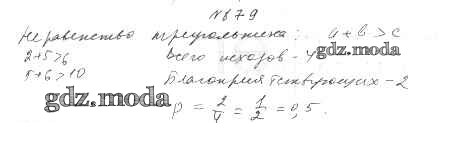 № 879
Неравенство треугольника: a + b > c
2+5>6 Всего исходов - 4 gdz.moda
5+6>10 Благоприятствующих - 2
gdz.moda p = 2/4 = 1/2 = 0,5.